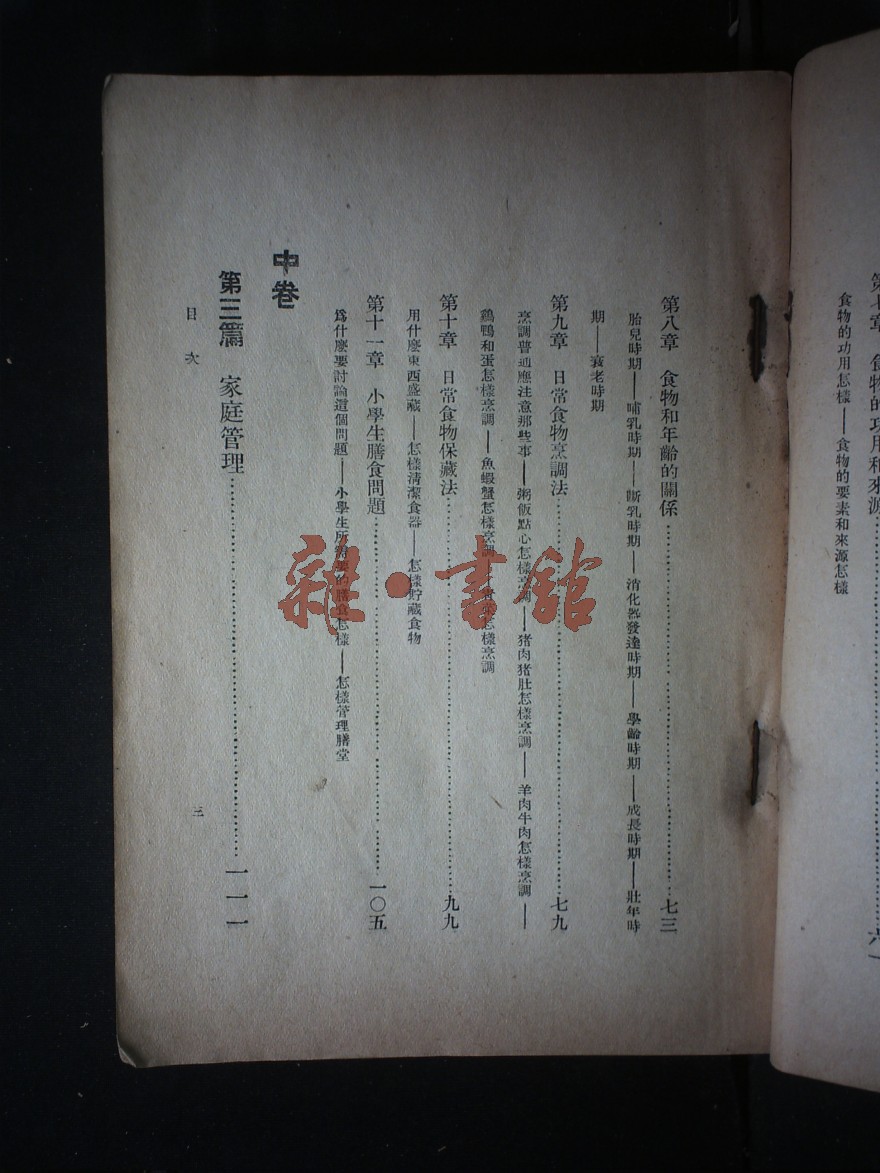 第七章 食物的功用和來源……六一
食物的功用怎樣——食物的要素和來源怎樣
第八章 食物和年齡的關係……七三
胎兒時期——哺乳時期——斷乳時期——消化器發達時期——學齡時期——成長時期——壯年時
期——衰老時期
第九章 日常食物烹調法……七九
烹調普通應注意那些事——粥飯點心怎樣烹調——猪肉猪肚怎樣烹調——羊肉牛肉怎樣烹調——
鷄鴨和蛋怎樣烹調——魚蝦蟹怎樣烹調——怎樣烹調
第十章 日常食物保藏法……九九
用什麽東西盛藏——怎樣清潔食器——怎樣貯藏食物
第十一章 小學生膳食問題……一〇五
爲什麽要討論這個問題——小學生所需要的膳食怎樣——怎樣管理膳堂
中卷
第三篇 家庭管理……一一一
目次
三
雜·書館